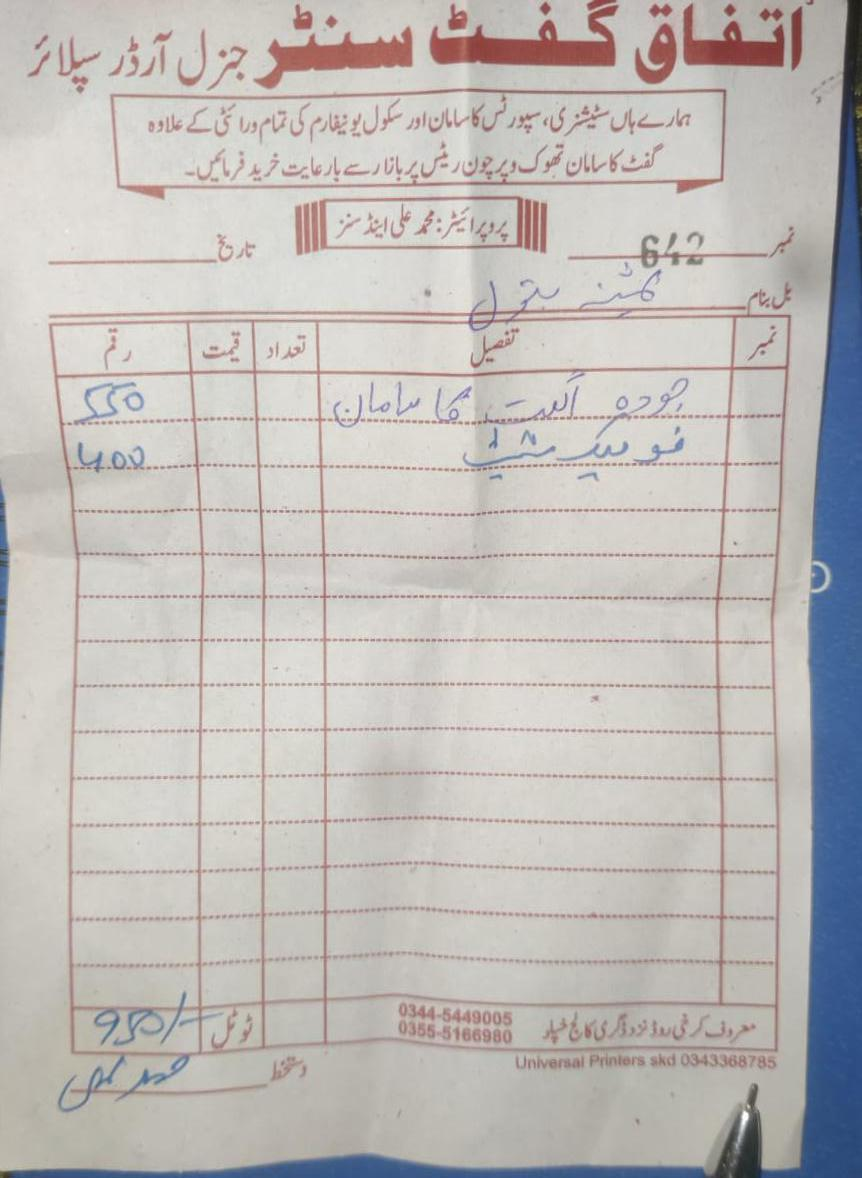 اتفاق گفٹ سنٹر جنرل آرڈر سپلائر
ہمارے ہاں سٹیشنری، سپورٹس کا سامان اور سکول یونیفارم کی تمام ورائٹی کے علاوہ
گفٹ کا سامان تھوک و پرچون ریٹس پر بازار سے بارعایت خرید فرمائیں۔
پروپرائیٹر: محمد علی اینڈ سنز
نمبر 642 تاریخ
بل بنام بتول
نمبر تفصیل تعداد قیمت رقم
چودہ اگست کا سامان 550
400
معروف کرغی روڈ نزد ڈگری کالج خپلو 0344-5449005 0355-5166980 ٹوٹل 950/-
دستخط
Universal Printers skd 0343368785